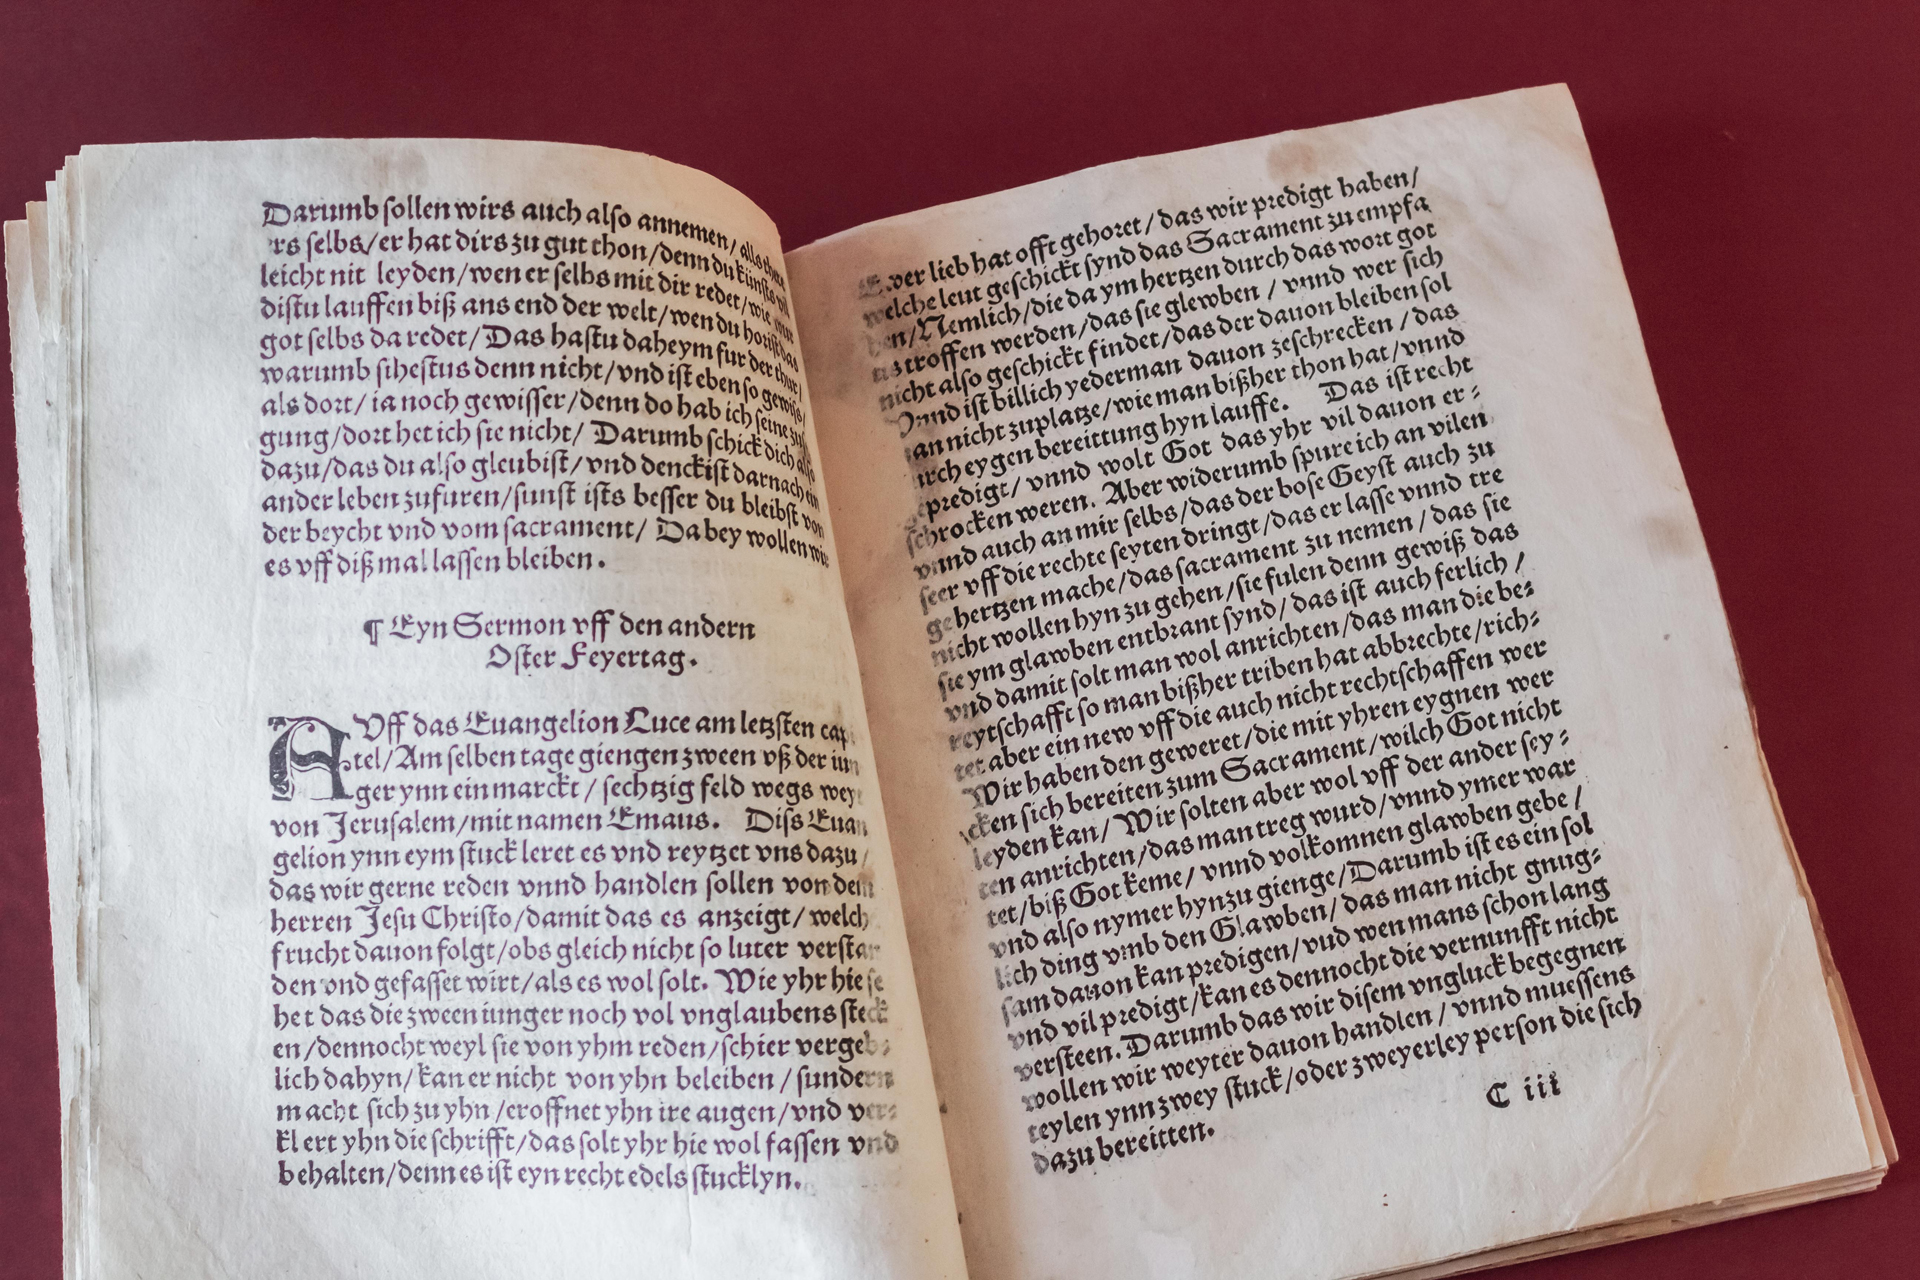 Darumb sollen wirs auch also annemen/ als
rs selbs/er hat dirs zu gut thon/denn du künsts
leicht nit leyden/wen er selbs mit dir redet/wie
distu lauffen biß ans end der welt/wen du horist das
got selbs da redet/ Das hastu daheym fur der thur/
warumb sihestus denn nicht/vnd ist eben so gewiß/
als dort/ ia noch gewisser/denn do hab ich seine
gung/dort het ich sie nicht/ Darumb schick dich also
dazu/das du also gleubist/vnd denckist darnach ein
ander leben zufuren/sunst ists besser du bleibst von
der beycht vnd vom sacrament/ Da bey wollen wir
es vff diß mal lassen bleiben.
¶ Eyn Sermon vff den andern
Oster Feyertag.
AVff das Euangelion Luce am letzsten cap
tel/Am selben tage giengen zween vß der iun
ger ynn ein marckt/sechtzig feld wegs wey
von Jerusalem/mit namen Emaus. Diss Euan
gelion ynn eym stuck leret es vnd reytzet vns dazu/
das wir gerne reden vnnd handlen sollen von dem
herren Jesu Christo/damit das es anzeigt/welch
frucht dauon folgt/obs gleich nicht so luter verstan
den vnd gefasset wirt/als es wol solt. Wie yhr hie se
het das die zween iunger noch vol vnglaubens steck
en/dennocht weyl sie von yhm reden/schier vergeb⸗
lich dahyn/kan er nicht von yhn beleiben/sundern
macht sich zu yhn/eroffnet yhn ire augen/vnd ver⸗
klert yhn die schrifft/das solt yhr hie wol fassen vnd
behalten/denn es ist eyn recht edels stucklyn.
Ewer lieb hat offt gehoret/das wir predigt haben/
welche leut geschickt synd das Sacrament zu empfa
hen/Nemlich/die da ym hertzen durch das wort got
tis troffen werden/das sie glewben/vnnd wer sich
nicht also geschickt findet/das der dauon bleiben sol
Vnnd ist billich yederman dauon zeschrecken/das
man nicht zuplatze/wie man bißher thon hat/vnnd
durch eygen bereittung hyn lauffe. Das ist recht
gepredigt/vnnd wolt Got das yhr vil dauon er⸗
schrocken weren. Aber widerumb spure ich an vilen
vnnd auch an mir selbs/das der bose Geyst auch zu
seer vff die rechte seyten dringt/das er lasse vnnd tre
ge hertzen mache/das sacrament zu nemen/das sie
nicht wollen hyn zu gehen/sie fulen denn gewiß das
sie ym glawben entbrant synd/das ist auch ferlich/
vnd damit solt man wol anrichten/das man die be⸗
reytschafft so man bißher triben hat abbrechte/rich⸗
tet aber ein new vff die auch nicht rechtschaffen wer
Wir haben den geweret/die mit yhren eygnen wer
cken sich bereiten zum Sacrament/wilch Got nicht
leyden kan/Wir solten aber wol vff der ander sey⸗
ten anrichten/das man treg wurd/vnnd ymer war
tet/biß Got keme/vnnd volkomnen glawben gebe/
vnd also nymer hynzu gienge/Darumb ist es ein sol
lich ding vmb den Glawben/das man nicht gnug⸗
sam dauon kan predigen/vnd wen mans schon lang
vnd vil predigt/kan es dennocht die vernunfft nicht
versteen. Darumb das wir disem vngluck begegnen
wollen wir weyter dauon handlen/vnnd muessens
teylen ynn zwey stuck/oder zweyerley person die sich
dazu bereitten.
C iii